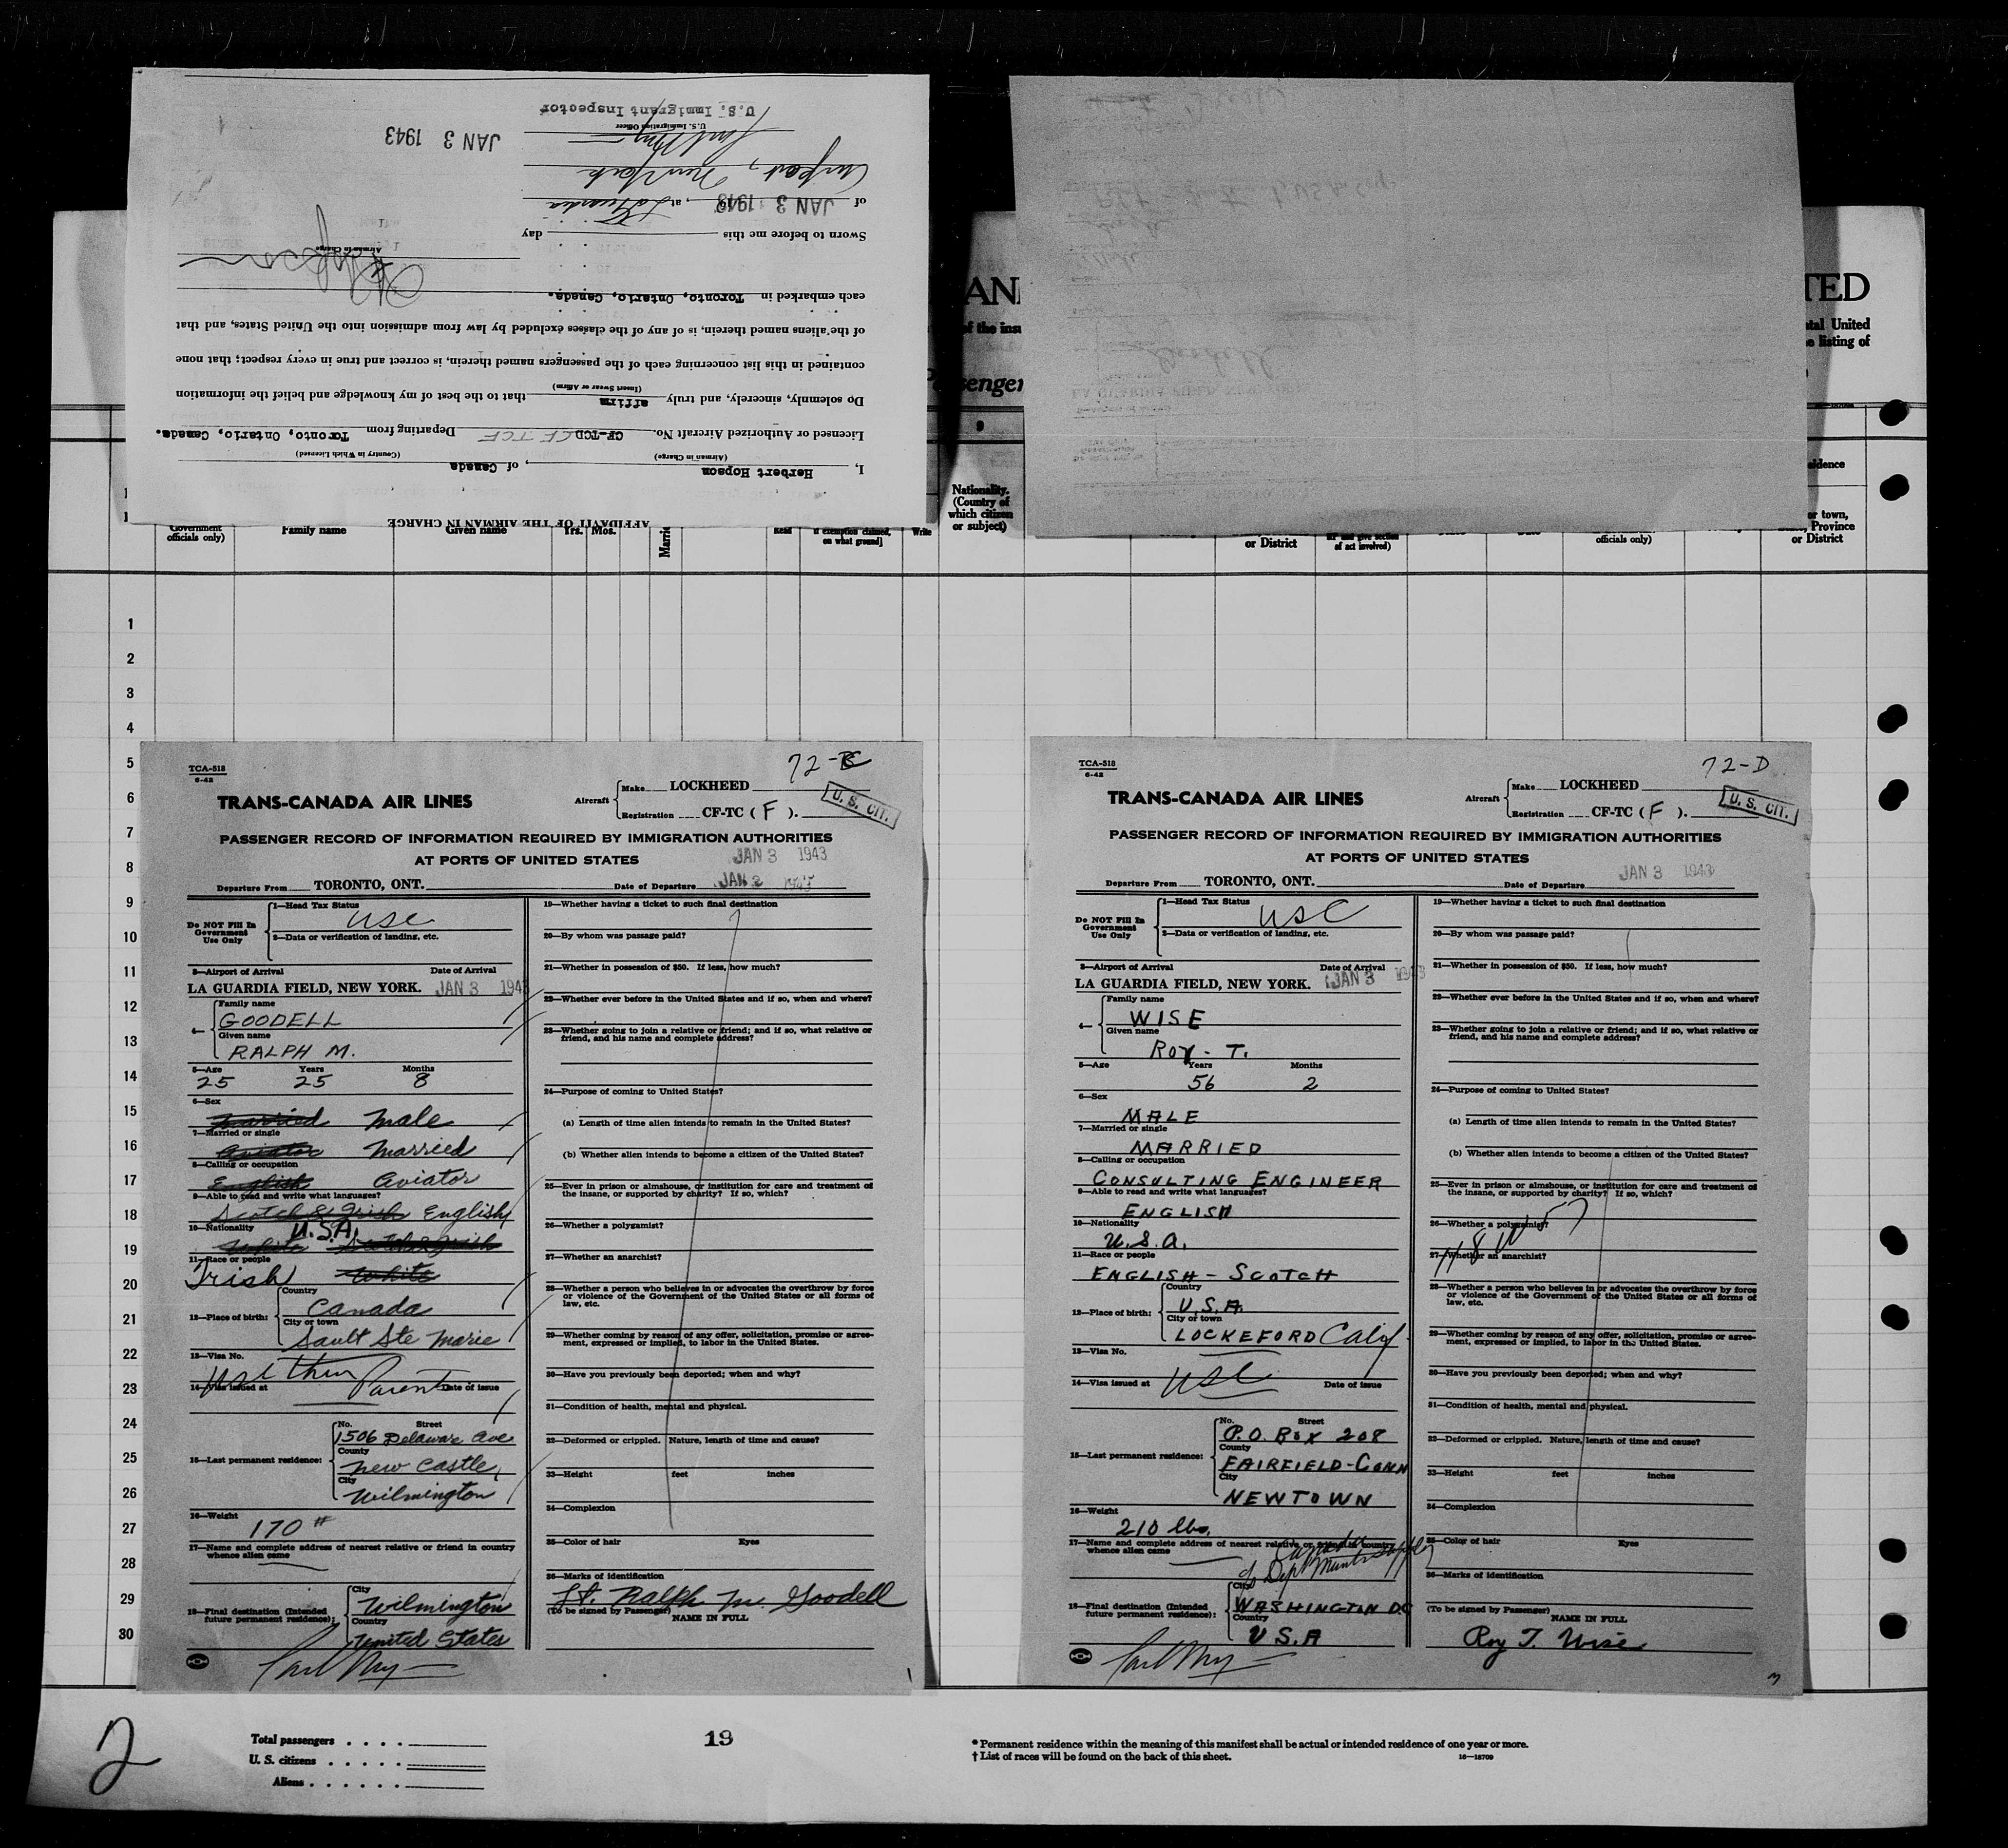 AFFIDAVIT OF THE AIRMAN IN CHARGE
I, Herbert Hopson, of Canada
(Airman in Charge) (Country in Which Licensed)
Licensed or Authorized Aircraft No. CF-TCD CF TCF Departing from Toronto, Ontario, Canada.
Do solemnly, sincerely, and truly affirm that to the best of my knowledge and belief the information
(Insert Swear or Affirm)
contained in this list concerning each of the passengers named therein, is correct and true in every respect; that none
of the aliens named therein, is of any of the classes excluded by law from admission into the United States, and that
each embarked in Toronto, Ontario, Canada.
Airman in Charge
Sworn to before me this day
of JAN 3 1943, at LaGuardia
Airport, New York
U.S. Immigration Officer
U.S. Immigrant Inspector
JAN 3 1943
AN
TED
of the ins
tal United
e listing of
senger
9
Government officials only)
Family name
Given name
Yrs. Mos.
Marri
Read
if exemption claimed, on what ground]
Write
Nationality. (Country of which citizen or subject)
or District
and give section of act involved)
officials only)
idence
or town, Province or District
1
2
3
4
5
6
7
8
9
10
11
12
13
14
15
16
17
18
19
20
21
22
23
24
25
26
27
28
29
30
TCA-518
6-42
72-C
TRANS-CANADA AIR LINES
Aircraft Make LOCKHEED
Registration CF-TC (F).
U. S. CIT.
PASSENGER RECORD OF INFORMATION REQUIRED BY IMMIGRATION AUTHORITIES
AT PORTS OF UNITED STATES
JAN 3 1943
Departure From TORONTO, ONT. Date of Departure JAN 2 1943
Do NOT Fill In Government Use Only
1—Head Tax Status
USC
2—Data or verification of landing, etc.
3—Airport of Arrival Date of Arrival
LA GUARDIA FIELD, NEW YORK. JAN 3 1943
4— Family name
GOODELL
Given name
RALPH M.
5—Age Years Months
25 25 8
6—Sex
Married Male
7—Married or single
Aviator Married
8—Calling or occupation
English Aviator
9—Able to read and write what languages?
Scotch & Irish English
10—Nationality U.S.A.
White Scotch & Irish
11—Race or people
Irish White
12—Place of birth: Country
Canada
City or town
Sault Ste Marie
13—Visa No.
USC thru Parent
14—Visa issued at Date of issue
15—Last permanent residence: No. Street
1506 Delaware Ave
County
New Castle,
City
Wilmington
16—Weight
170 #
17—Name and complete address of nearest relative or friend in country whence alien came
18—Final destination (Intended future permanent residence): City
Wilmington
Country
United States
19—Whether having a ticket to such final destination
20—By whom was passage paid?
21—Whether in possession of $50. If less, how much?
22—Whether ever before in the United States and if so, when and where?
23—Whether going to join a relative or friend; and if so, what relative or friend, and his name and complete address?
24—Purpose of coming to United States?
(a) Length of time alien intends to remain in the United States?
(b) Whether alien intends to become a citizen of the United States?
25—Ever in prison or almshouse, or institution for care and treatment of the insane, or supported by charity? If so, which?
26—Whether a polygamist?
27—Whether an anarchist?
28—Whether a person who believes in or advocates the overthrow by force or violence of the Government of the United States or all forms of law, etc.
29—Whether coming by reason of any offer, solicitation, promise or agreement, expressed or implied, to labor in the United States.
30—Have you previously been deported; when and why?
31—Condition of health, mental and physical.
32—Deformed or crippled. Nature, length of time and cause?
33—Height feet inches
34—Complexion
35—Color of hair Eyes
36—Marks of identification
Lt. Ralph M. Goodell
(To be signed by Passenger) NAME IN FULL
1
TCA-518
6-42
72-D
TRANS-CANADA AIR LINES
Aircraft Make LOCKHEED
Registration CF-TC (F).
U. S. CIT.
PASSENGER RECORD OF INFORMATION REQUIRED BY IMMIGRATION AUTHORITIES
AT PORTS OF UNITED STATES
Departure From TORONTO, ONT. Date of Departure JAN 3 1943
Do NOT Fill In Government Use Only
1—Head Tax Status
USC
2—Data or verification of landing, etc.
3—Airport of Arrival Date of Arrival
LA GUARDIA FIELD, NEW YORK. JAN 3 1943
4— Family name
WISE
Given name
ROY - T.
5—Age Years Months
56 2
6—Sex
MALE
7—Married or single
MARRIED
8—Calling or occupation
CONSULTING ENGINEER
9—Able to read and write what languages?
ENGLISH
10—Nationality
U.S.A.
11—Race or people
ENGLISH - SCOTCH
12—Place of birth: Country
U.S.A.
City or town
LOCKEFORD Calif
13—Visa No.
USC
14—Visa issued at Date of issue
15—Last permanent residence: No. Street
P.O. BOX 208
County
FAIRFIELD - CONN
City
NEWTOWN
16—Weight
210 lbs.
17—Name and complete address of nearest relative or friend in country whence alien came
18—Final destination (Intended future permanent residence): City
WASHINGTON D.C
Country
U S.A
19—Whether having a ticket to such final destination
20—By whom was passage paid?
21—Whether in possession of $50. If less, how much?
22—Whether ever before in the United States and if so, when and where?
23—Whether going to join a relative or friend; and if so, what relative or friend, and his name and complete address?
24—Purpose of coming to United States?
(a) Length of time alien intends to remain in the United States?
(b) Whether alien intends to become a citizen of the United States?
25—Ever in prison or almshouse, or institution for care and treatment of the insane, or supported by charity? If so, which?
26—Whether a polygamist?
27—Whether an anarchist?
28—Whether a person who believes in or advocates the overthrow by force or violence of the Government of the United States or all forms of law, etc.
29—Whether coming by reason of any offer, solicitation, promise or agreement, expressed or implied, to labor in the United States.
30—Have you previously been deported; when and why?
31—Condition of health, mental and physical.
32—Deformed or crippled. Nature, length of time and cause?
33—Height feet inches
34—Complexion
35—Color of hair Eyes
36—Marks of identification
(To be signed by Passenger) NAME IN FULL
Roy T. Wise
3
2
Total passengers
U. S. citizens
Aliens
13
* Permanent residence within the meaning of this manifest shall be actual or intended residence of one year or more.
† List of races will be found on the back of this sheet.
16—18709